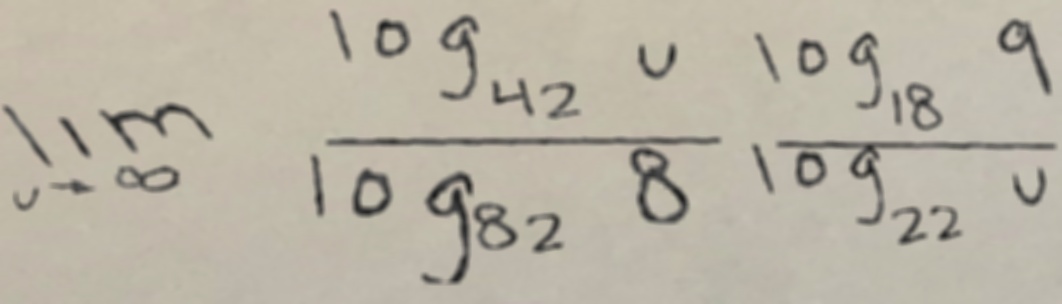 lim_{u→∞} \frac{log_{42} u}{log_{82} 8} \frac{log_{18} 9}{log_{22} u}